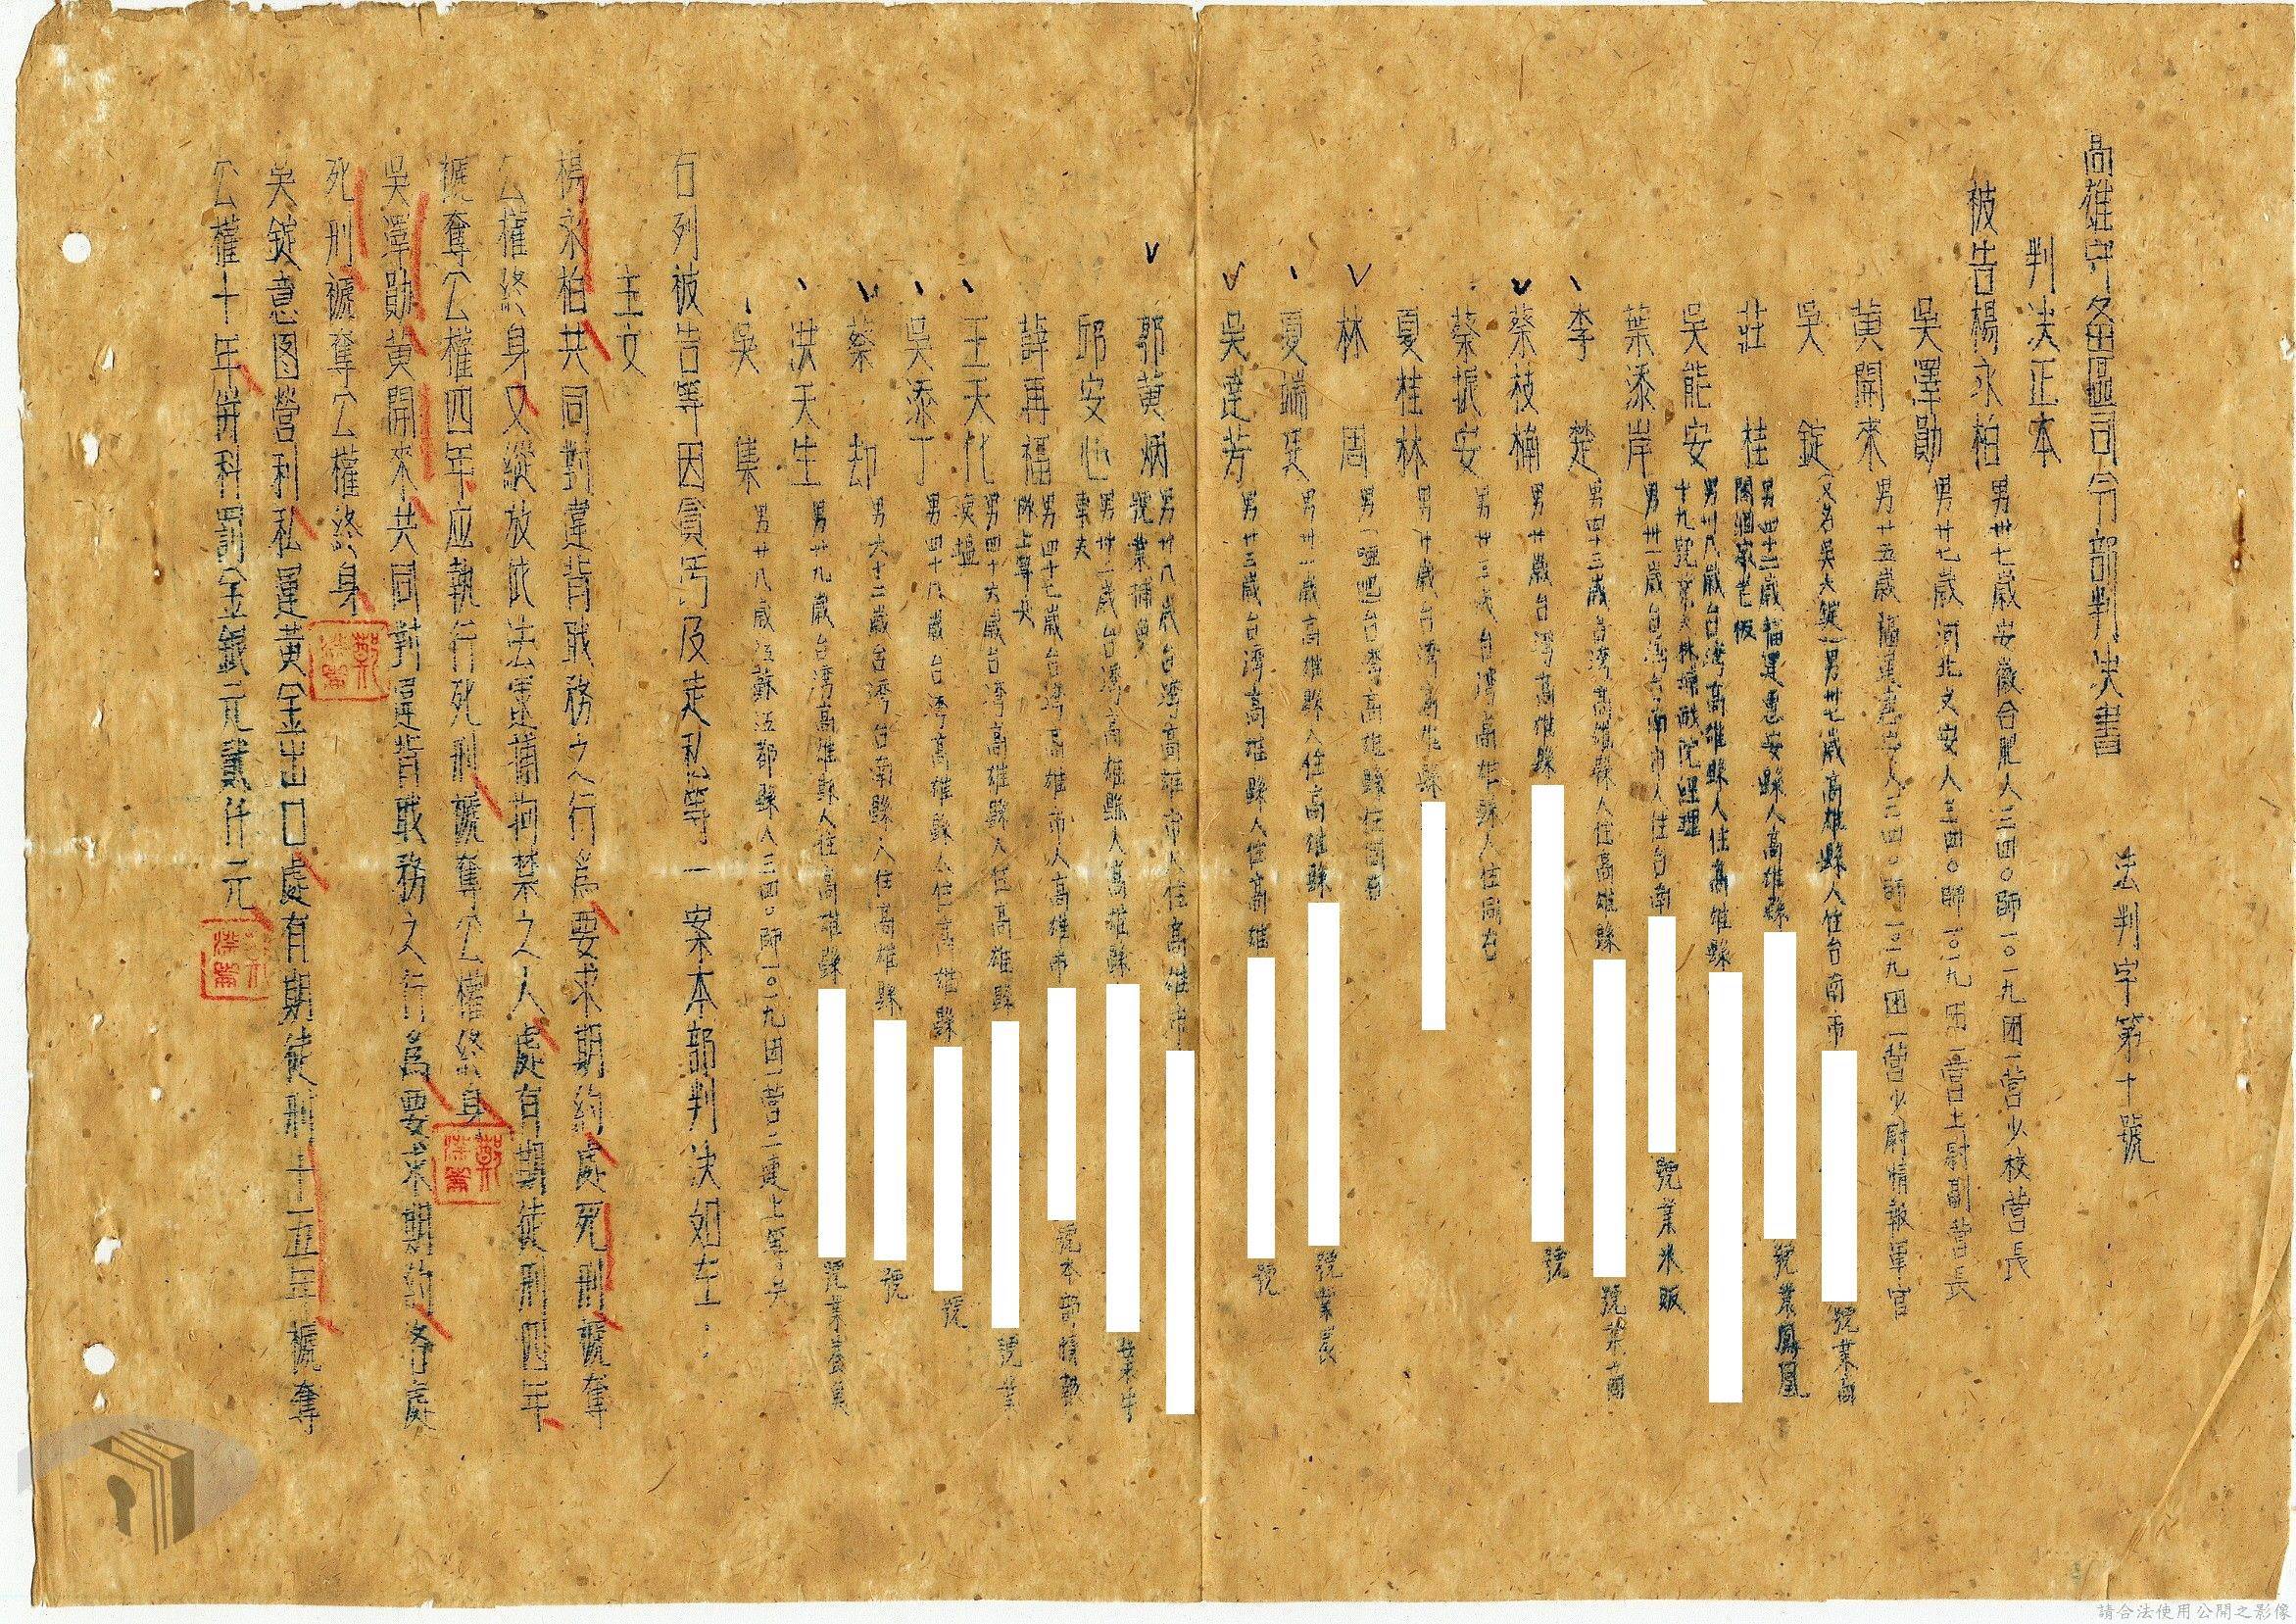 高雄守备區司令部判决書
法判字第十號
判决正本
被告楊永柏 男卅七歲安徽合肥人三四〇師一〇一九團一營少校營長
吳澤勛 男廿七歲河北文安人三四〇師一〇一九团一營上尉副營長
黃開來 男廿五歲福建惠安人三四〇師一〇一九团一營少尉情報軍官
吳錠 (又名吳大錠)男卅七歲高雄縣人住台南市 號業商
莊桂 男四十二歲福建惠安縣人高雄縣 號業鳳凰
閣酒家老板
吳能安 男卅八歲台灣高雄縣人住高雄縣
十九號業大林 戲院經理
葉添岸 男卅一歲台灣台南市人住台南 號業米販
李楚 男四十三歲台灣高雄縣人住高雄縣 號業商
蔡枝楠 男廿歲台灣高雄縣 號
蔡振安 男廿三歲台灣高雄縣人住同右
夏桂林 男廿歲台灣高雄縣
林周 男 台灣高雄縣住同右
夏端廷 男卅一歲高雄縣人住高雄縣 號業農
吳達芳 男廿三歲台灣高雄縣人住高雄 號
郭黃炳 男廿八歲台灣高雄市人住高雄市
號業捕魚
邱安心 男卅二歲台灣高雄縣人高雄縣 業牛
車夫
薛再福 男四十七歲台灣高雄市人高雄市 號本部情報
隊上等兵
王天化 男四十六歲台灣高雄縣人住高雄縣 號業
漁撈
吳添丁 男四十八歲台灣高雄縣人住高雄縣 號
蔡却 男六十二歲台灣台南縣人住高雄縣 號
洪天生 男廿九歲台灣高雄縣人住高雄縣 號業農魚
吳集 男廿八歲江蘇江都縣人三四〇師一〇一九团一營二連上等兵
右列被告等因貪污及走私等一案本部判决如左：
主文
楊永柏共同對違背戰務之行爲要求期約處死刑褫奪
公權終身又縱放依法逮捕拘禁之人處有期徒刑四年
褫奪公權四年应執行死刑褫奪公權終身
吳澤勛黃開來共同對違背戰務之行爲要求期約各處
死刑褫奪公權終身
吳錠意图營利私運黃金出口處有期徒刑十五年褫奪
公權十年併科罰金銀元貳仟元
請合法使用公開之影像